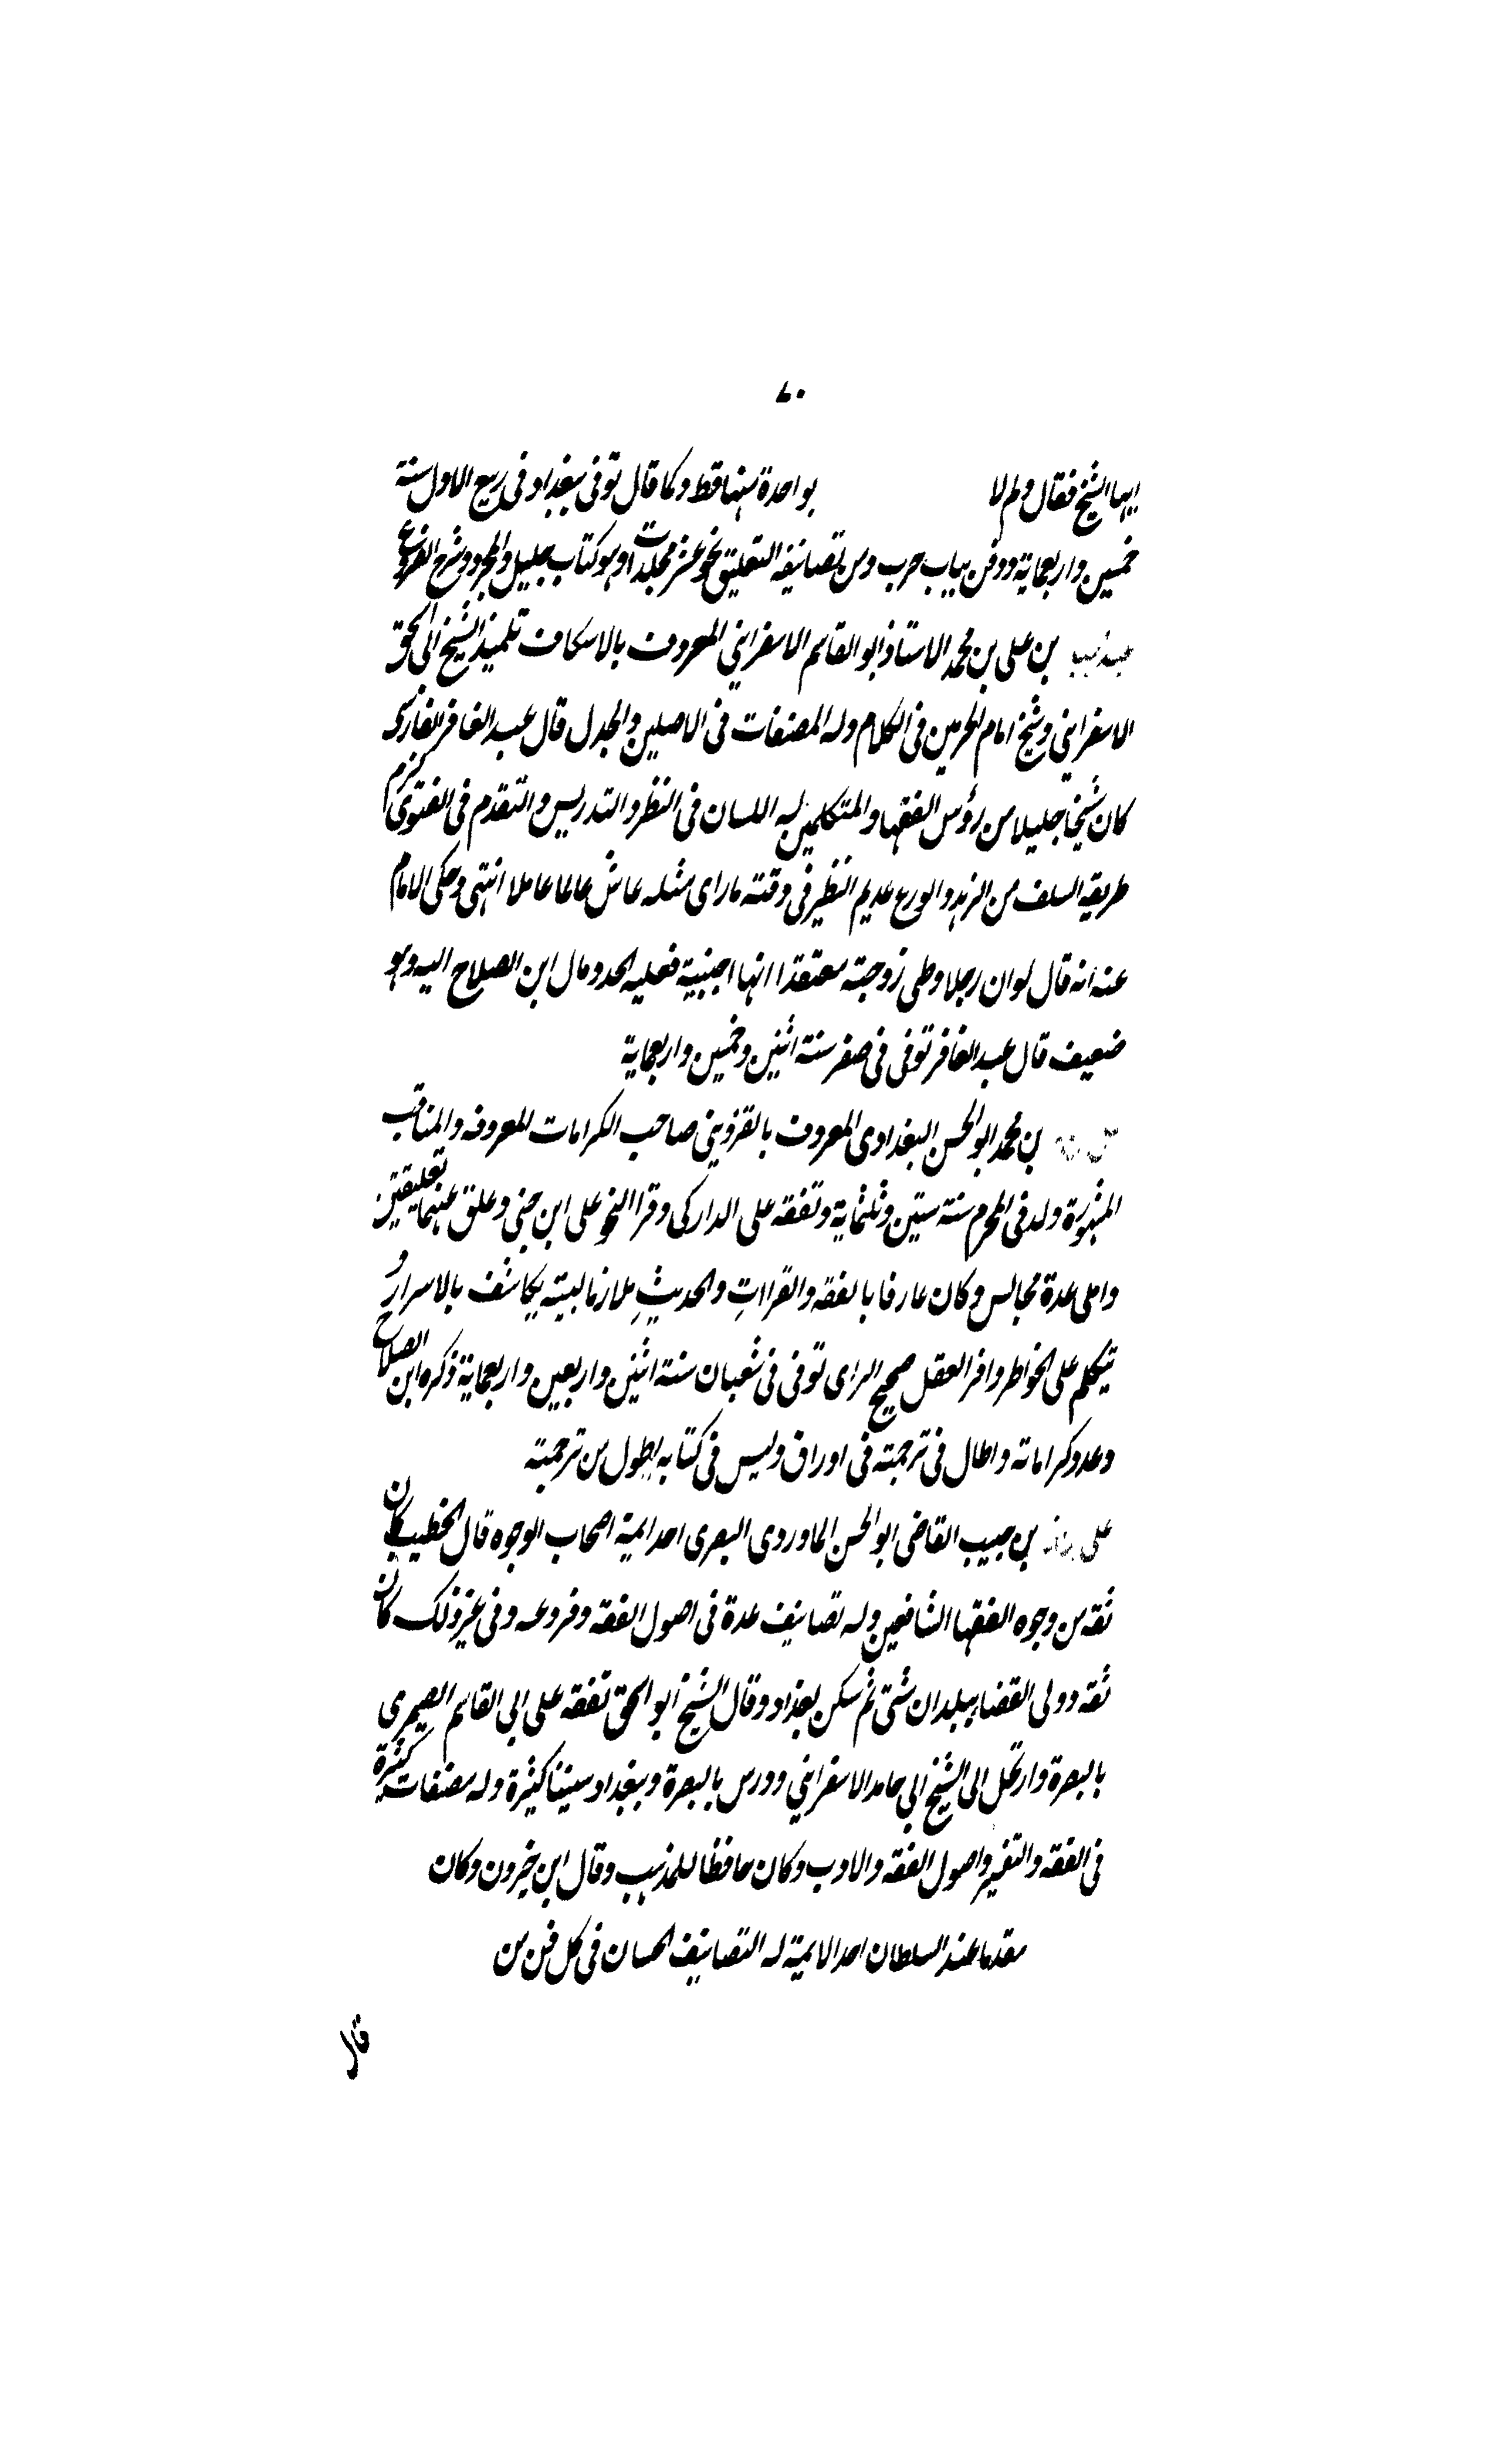 ٧٠
ايها الشيخ فقال ولم لا بواحدة منها قط وكما قال توفى ببغداد فى ربيع الاول سنة
خمسين واربعماية ودفن بباب حرب ومن تصانيفه التعليق نحو عشر مجلدات وهو كتاب جليل والمجرد وشرح الفروع
بن على بن محمد الاستاذ ابو القاسم الاسفراينى المعروف بالاسكاف تلميذ الشيخ ابى اسحق
الاسفراينى وشيخ امام الحرمين فى الكلام وله المصنفات فى الاصلين والجدل قال عبد الغافر الفارسى
كان شيخا جليلا من رؤس الفقها والمتكلمين له اللسان فى النظر والتدريس والتقدم فى الفتوى لزم
طريقة السلف من الزهد والورع عديم النظير فى وقته ما راى مثله عاش عالما عاملا انتهى وحكى الامام
عنه انه قال لو ان رجلا وطى زوجته معتقدا انها اجنبية فعليه الحد ومال ابن الصلاح اليه وهو
ضعيف قال عبد الغافر توفى فى صفر سنة اثنين وخمسين واربعماية
بن محمد ابو الحسن البغدادى المعروف بالقزوينى صاحب الكرامات المعروفة والمناقب
المشهورة ولد فى المحرم سنة ستين وثلثماية وتفقه على الداركى وقرا النحو على ابن جنى وعلق عنهما تعليقتين
واملى عدة مجالس وكان عارفا بالفقه والقراات والحديث ملازما لبيته يكاشف بالاسرار و
يتكلم على الخواطر وافر العقل صحيح الراى توفى فى شعبان سنة اثنين واربعين واربعماية ذكره ابن الصلاح
وعدد كراماته واطال فى ترجمته فى اوراق وليس فى كتابه اطول من ترجمته
على بن حبيب القاضى ابو الحسن الماوردى البصرى احد ايمة اصحاب الوجوه قال الخطيب كان
ثقة من وجوه الفقها الشافعين وله تصانيف عدة فى اصول الفقه وفروعه وفى غير ذلك كان
ثقة وولى القضا ببلدان شتى ثم سكن بغداد وقال الشيخ ابو اسحق تفقه على ابى القاسم الصيمرى
بالبصرة وارتحل الى الشيخ ابى حامد الاسفراينى ودرس بالبصرة وببغداد سنينا كثيرة وله مصنفات كثيرة
فى الفقه والتفسير واصول الفقه والادب وكان حافظا للمذهب وقال ابن خيرون وكان
مقدما عند السلطان احد الايمة له التصانيف الحسان فى كل فن من